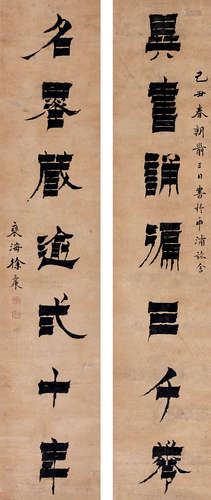 異書誦徧三千卷
己丑春朝前三日書於申浦旅舍
名藏逾弍十年
海徐